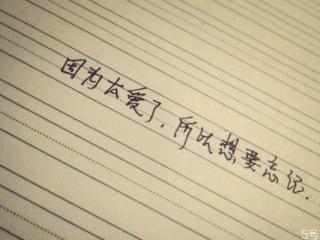 因为太爱了，所以想要忘记.
5号